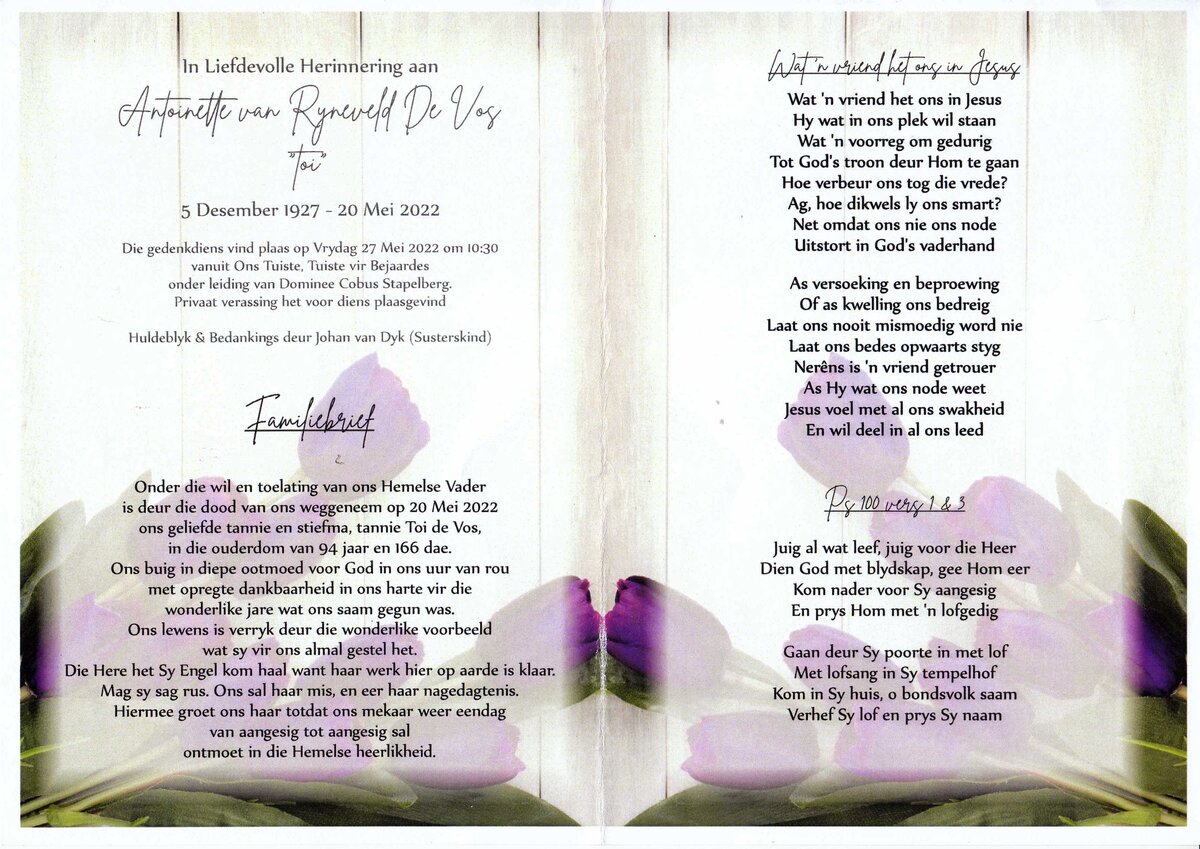 In Liefdevolle Herinnering aan
Antoinette van Ryneveld De Vos
"Toi"
5 Desember 1927 - 20 Mei 2022
Die gedenkdiens vind plaas op Vrydag 27 Mei 2022 om 10:30
vanuit Ons Tuiste, Tuiste vir Bejaardes
onder leiding van Dominee Cobus Stapelberg.
Privaat verassing het voor diens plaasgevind
Huldeblyk & Bedankings deur Johan van Dyk (Susterskind)
Familiebrief
Onder die wil en toelating van ons Hemelse Vader
is deur die dood van ons weggeneem op 20 Mei 2022
ons geliefde tannie en stiefma, tannie Toi de Vos,
in die ouderdom van 94 jaar en 166 dae.
Ons buig in diepe ootmoed voor God in ons uur van rou
met opregte dankbaarheid in ons harte vir die
wonderlike jare wat ons saam gegun was.
Ons lewens is verryk deur die wonderlike voorbeeld
wat sy vir ons almal gestel het.
Die Here het Sy Engel kom haal want haar werk hier op aarde is klaar.
Mag sy sag rus. Ons sal haar mis, en eer haar nagedagtenis.
Hiermee groet ons haar totdat ons mekaar weer eendag
van aangesig tot aangesig sal
ontmoet in die Hemelse heerlikheid.
Wat 'n vriend het ons in Jesus
Wat 'n vriend het ons in Jesus
Hy wat in ons plek wil staan
Wat 'n voorreg om gedurig
Tot God's troon deur Hom te gaan
Hoe verbeur ons tog die vrede?
Ag, hoe dikwels ly ons smart?
Net omdat ons nie ons node
Uitstort in God's vaderhand
As versoeking en beproewing
Of as kwelling ons bedreig
Laat ons nooit mismoedig word nie
Laat ons bedes opwaarts styg
Nerêns is 'n vriend getrouer
As Hy wat ons node weet
Jesus voel met al ons swakheid
En wil deel in al ons leed
Ps 100 vers 1 & 3
Juig al wat leef, juig voor die Heer
Dien God met blydskap, gee Hom eer
Kom nader voor Sy aangesig
En prys Hom met 'n lofgedig
Gaan deur Sy poorte in met lof
Met lofsang in Sy tempelhof
Kom in Sy huis, o bondsvolk saam
Verhef Sy lof en prys Sy naam